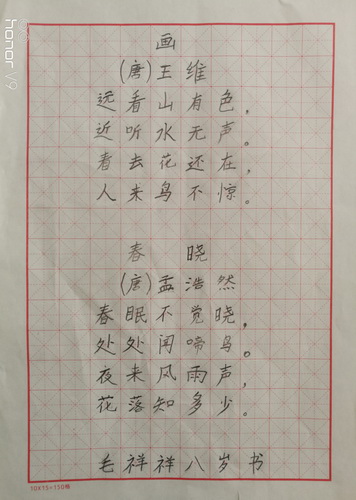 画
(唐)王维
远看山有色,
近听水无声。
春去花还在,
人来鸟不惊。
春晓
(唐)孟浩然
春眠不觉晓,
处处闻啼鸟。
夜来风雨声,
花落知多少。
毛祥祥八岁书
10X15=150格
honor V9